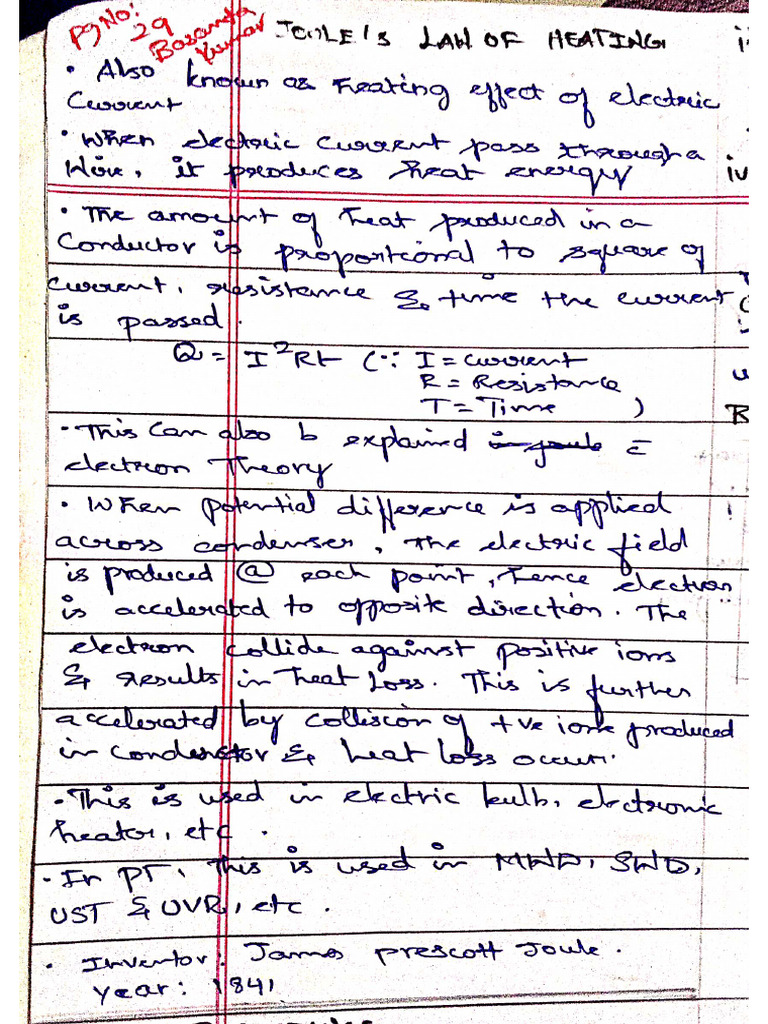 Pg No: 29
Basanta Kumar
JOULE'S LAW OF HEATING
• Also known as heating effect of electric
Current
• When electric current pass through a
Wire, it produces heat energy
• The amount of heat produced in a
Conductor is proportional to square of
current, resistance & time the current
is passed.
Q = I²Rt (∵ I = current
R = Resistance
T = Time )
• This can also b explained c̄
electron Theory
• When potential difference is applied
across condenser, the electric field
is produced @ each point, hence electron
is accelerated to opposite direction. The
electron collide against positive ions
& results in heat loss. This is further
accelerated by colliscion of +ve ions produced
in conductor & heat loss occur.
• This is used in electric bulb, electronic
heator, etc.
• In PT, this is used in MWD, SWD,
UST & UVR, etc.
• Inventor: James prescott Joule.
Year: 1841